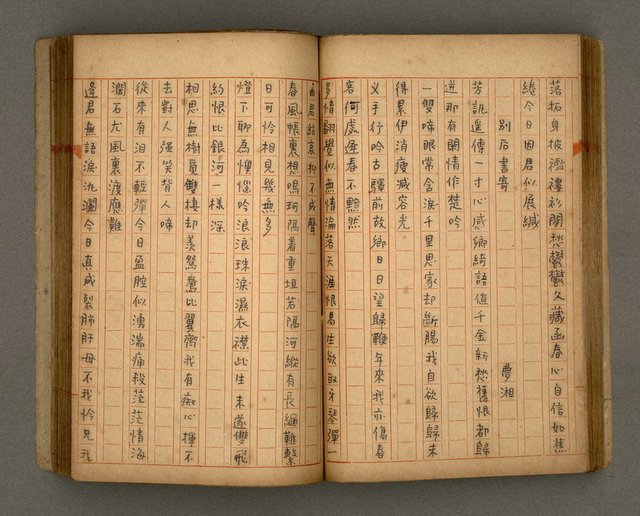 落拓身披襤褸衫閑愁鬱鬱久藏函春心自信如蕉
綣今日因君似展緘
別後書寄 夢湘
芳訊遙傳一寸心感卿綺語值千金新愁舊恨都歸
逝那有閑情作楚吟
一雙啼眼常含淚千里思家却斷腸我自欲歸歸未
得累伊消瘦減容光
义手行吟古驛前故鄉日日望歸鞭年來我亦傷春
客何處逢春不黯然
多情翻覺似無情淪落天涯恨易生欲取牙琴彈一
曲君絃哀抑不成聲
春風悵裏想鳴珂隔著重垣若隔河縱有長繩難繫
日可怜相見幾無多
燈下聊為懊惱吟浪浪珠淚濕衣襟此生未遂雙飛
約恨比銀河一樣深
相思無樹員雙棲却羨鴛鴦比翼齊我有痴心揮不
去對人强笑背人啼
從來有泪不輕彈今日盈腔似湧湍痛殺茫茫情海
濶石尤風裏渡應難
逢君無語淚汍瀾今日真成裂肺肝母不我怜兄我